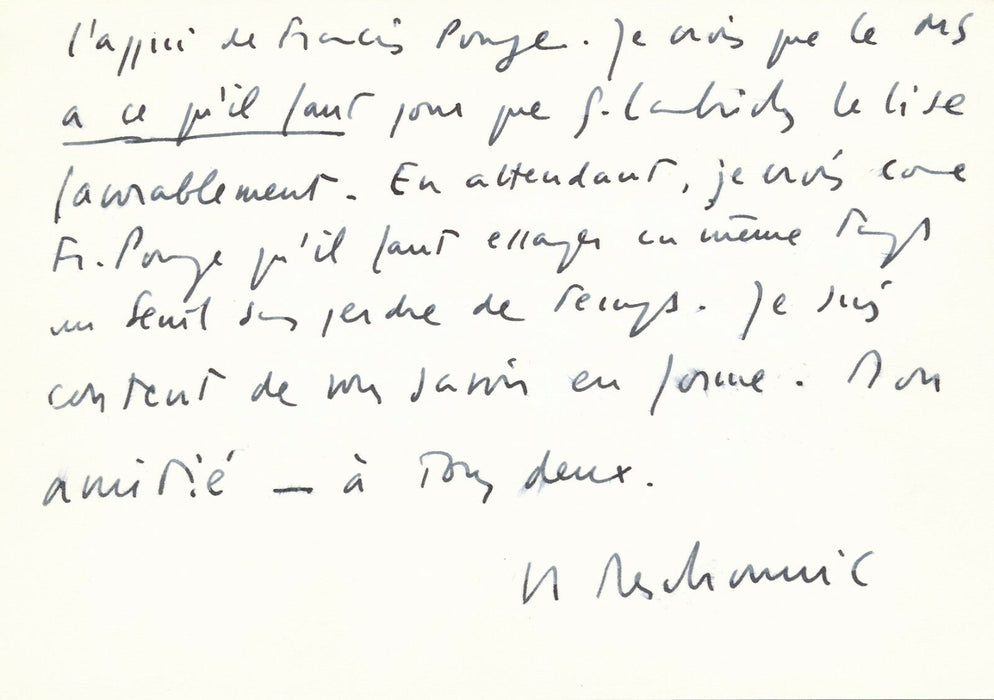 l'appui de Francis Ponge. Je crois que le MS
a ce qu'il faut pour que G. Lambrichs le lise
favorablement. En attendant, je crois come
Fr. Ponge qu'il faut essayer en même temps
au Seuil sans perdre de temps. Je suis
content de vous savoir en forme. Mon
amitié — à tous deux.
H Meschonnic